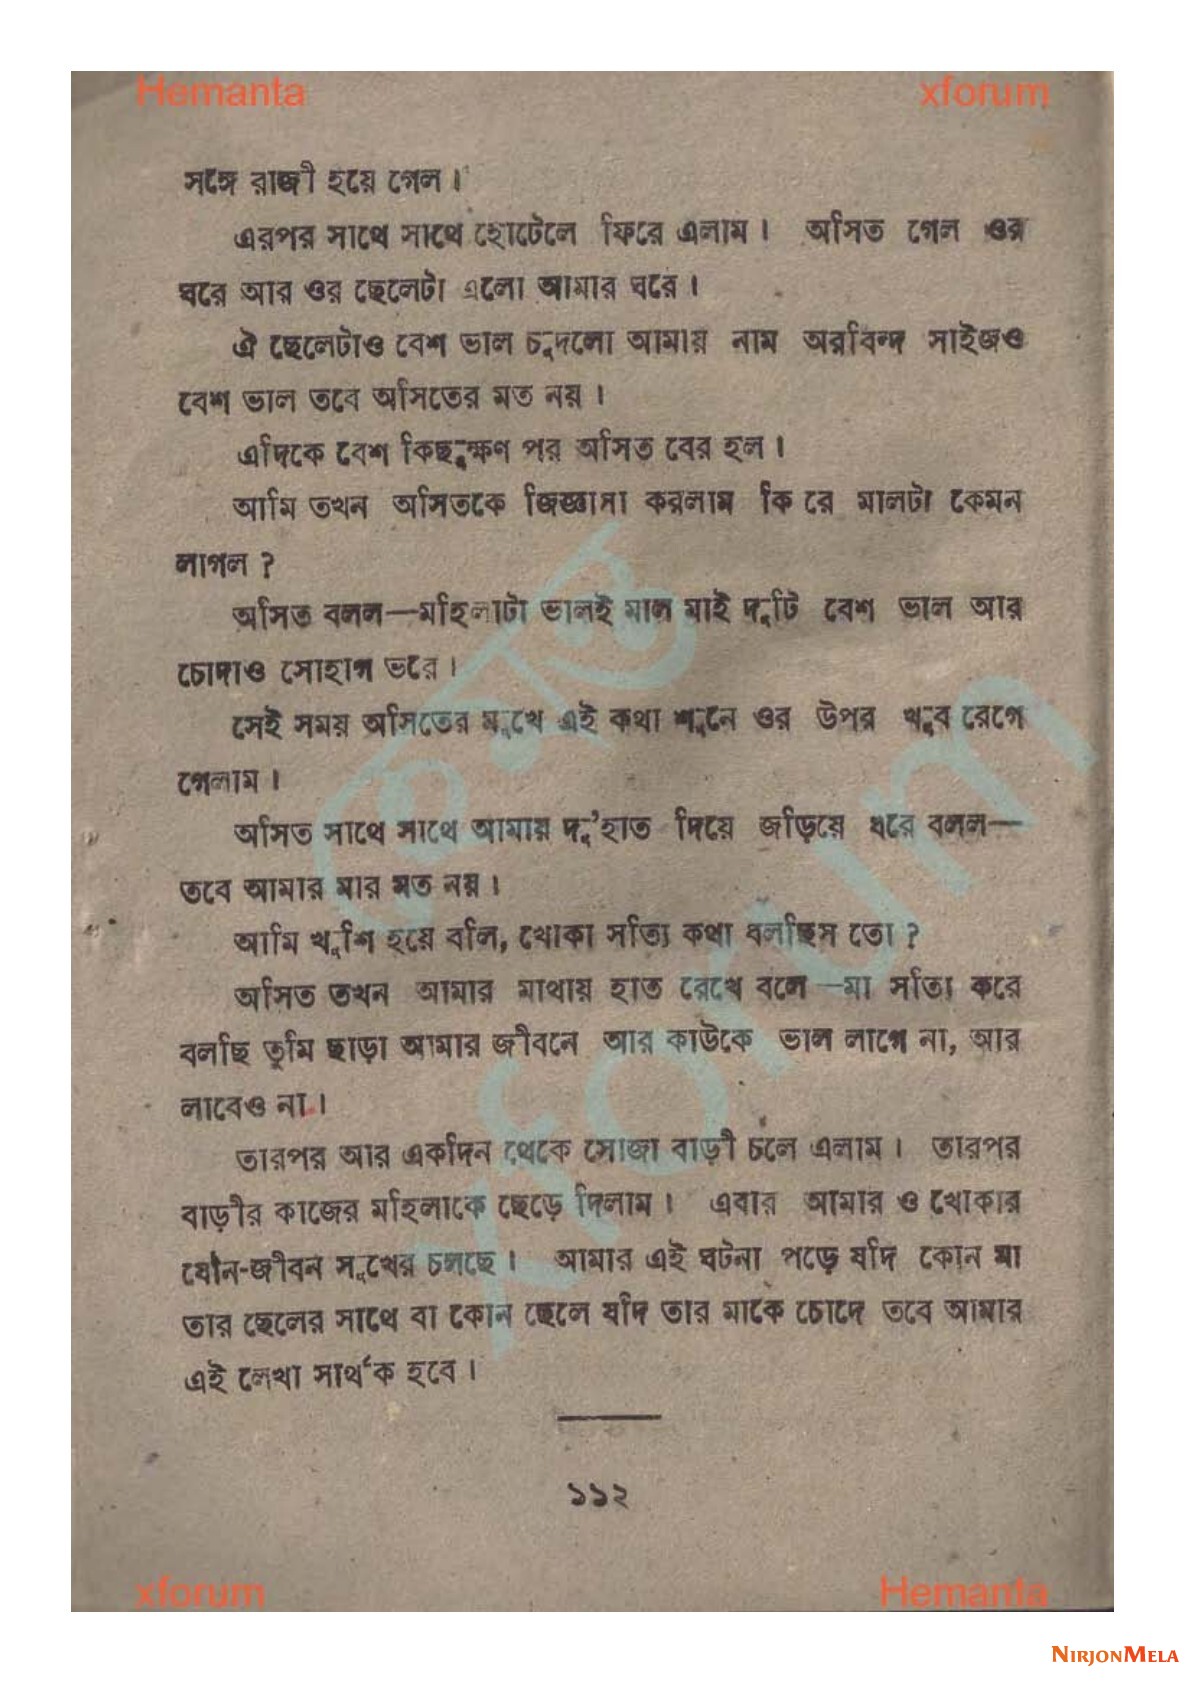 Hemanta
xforum
সঙ্গে রাজী হয়ে গেল।
এরপর সাথে সাথে হোটেলে ফিরে এলাম। অসিত গেল ওর
ঘরে আর ওর ছেলেটা এলো আমার ঘরে।
ঐ ছেলেটাও বেশ ভাল চুদলো আমায় নাম অরবিন্দ সাইজও
বেশ ভাল তবে অসিতের মত নয়।
এদিকে বেশ কিছুক্ষণ পর অসিত বের হল।
আমি তখন অসিতকে জিজ্ঞাসা করলাম কি রে মালটা কেমন
লাগল?
অসিত বলল—মহিলাটা ভালই মাল মাই দুটি বেশ ভাল আর
চোদাও সোহাগ ভরে।
সেই সময় অসিতের মুখে এই কথা শুনে ওর উপর খুব রেগে
গেলাম।
অসিত সাথে সাথে আমায় দু'হাত দিয়ে জড়িয়ে ধরে বলল—
তবে আমার মার মত নয়।
আমি খুশি হয়ে বলি, খোকা সত্যি কথা বলছিস তো?
অসিত তখন আমার মাথায় হাত রেখে বলে—মা সত্যি করে
বলছি তুমি ছাড়া আমার জীবনে আর কাউকে ভাল লাগে না, আর
লাবেও না।
তারপর আর একদিন থেকে সোজা বাড়ী চলে এলাম। তারপর
বাড়ীর কাজের মহিলাকে ছেড়ে দিলাম। এবার আমার ও খোকার
যৌন-জীবন সুখের চলছে। আমার এই ঘটনা পড়ে যদি কোন মা
তার ছেলের সাথে বা কোন ছেলে যদি তার মাকে চোদে তবে আমার
এই লেখা সার্থক হবে।
১১২
xforum
Hemanta
হেমন্ত
xforum
NIRJONMELA